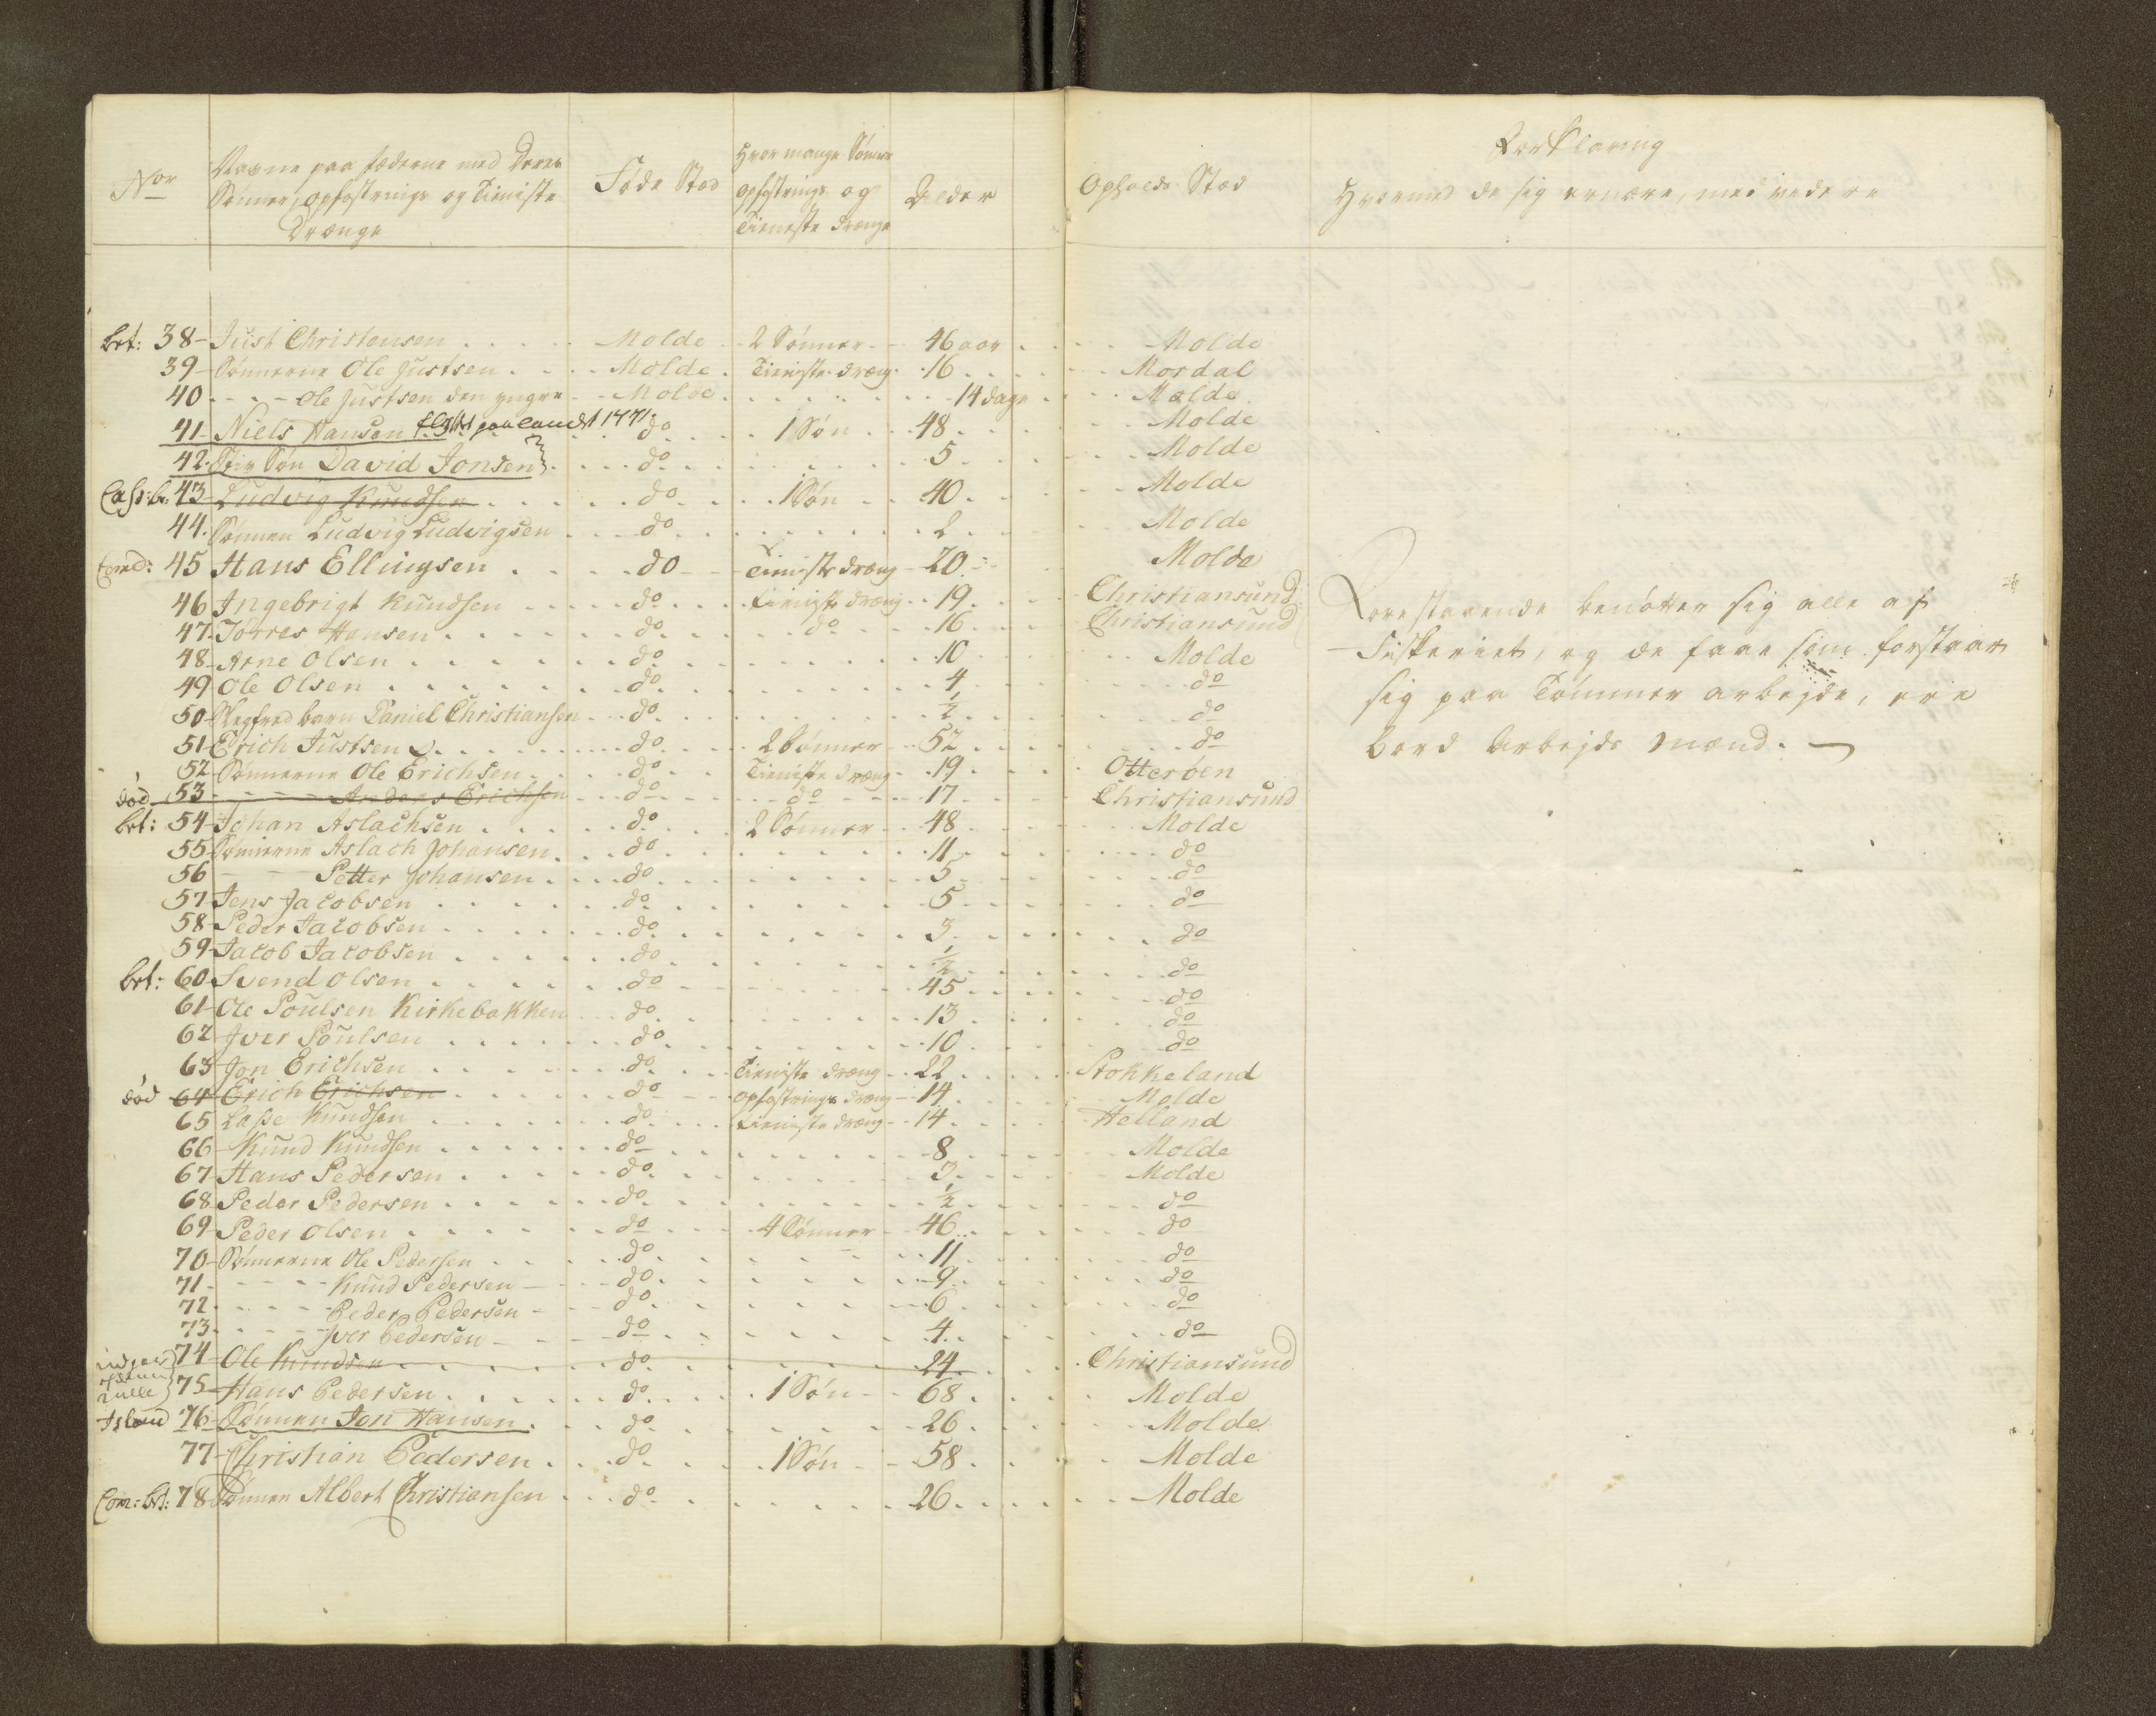 Nor Navne paa fædrene med Deres Sønner, opfostrings og Tieniste Drænge Føde Stæd Hvor mange Sønner opfostrings og Tieneste drænge Alder Opholds Stæd Forklaring Hvormed de sig ernære, med videre
bet: 38 Just Christensen Molde 2 Sønner 46 aar Molde
39 Sønnerne Ole Justsen Molde Tieniste dræng 16 Mordal
40 - - Ole Justsen den yngre Molde 14 dage Molde
41 Niels Hansen flytt paa landet 1771 do 1 Søn 48 Molde
42 Stiv Søn David Jonsen do 5 Molde
43 Ludvig Knudsen do 1 Søn 40 Molde
44 Sønnen Ludvig Ludvigsen do 2 Molde
45 Hans Ellingsen do Tieniste dræng 20 Molde
46 Ingebrigt Knudsen do tieniste dræng 19 Christiansund
47 Tørres Hansen do do 16 Christiansund
48 Arne Olsen do 10 Molde
49 Ole Olsen do 4 do
50 barn Daniel Christiansen do 1/2 do
51 Erich Justsen do 2 Sønner 52 do
52 Sønnerne Ole Erichsen do Tieniste dræng 19 Otterøen
død 53 - - - Anders Erichsen do do 17 Christiansund
bet: 54 Johan Aslachsen do 2 Sønner 48 Molde
55 Sønnerne Aslach Johansen do 11 do
56 - - Petter Johansen do 5 do
57 Jens Jacobsen do 5 do
58 Peder Jacobsen do 3 do
59 Jacob Jacobsen do 1/2 do
bet: 60 Svend Olsen do 45 do
61 Ole Poulsen Kirkebakken do 13 do
62 Iver Poulsen do 10 do
63 Jon Erichsen do Tieniste dræng 22 Stokkeland
død 64 Erich Erichsen do opfostrings dræng 14 Molde
65 Lasse Knudsen do tieniste dræng 14 Helland
66 Knud Knudsen do 8 Molde
67 Hans Pedersen do 3 Molde
68 Peder Pedersen do 1/2 do
69 Peder Olsen do 4 Sønner 46 do
70 Sønnerne Ole Pedersen do 11 do
71 - - - Knud Pedersen do 9 do
72 - - - Peder Pedersen do 6 do
73 - - - Iver Pedersen do 4 do
74 Ole Knudsen do 24 Christiansund
75 Hans Pedersen do 1 Søn 68 Molde
76 Sønnen Jon Hansen do 26 Molde
77 Christian Pedersen do 1 Søn 58 Molde
Com: bet: 78 Sønnen Albert Christiansen do 26 Molde
Forestaaende benøtter sig alle af
Fiskeriet, og de faae som forstaar
sig paa Tømmer arbejde, ere
bord Arbejds mænd.